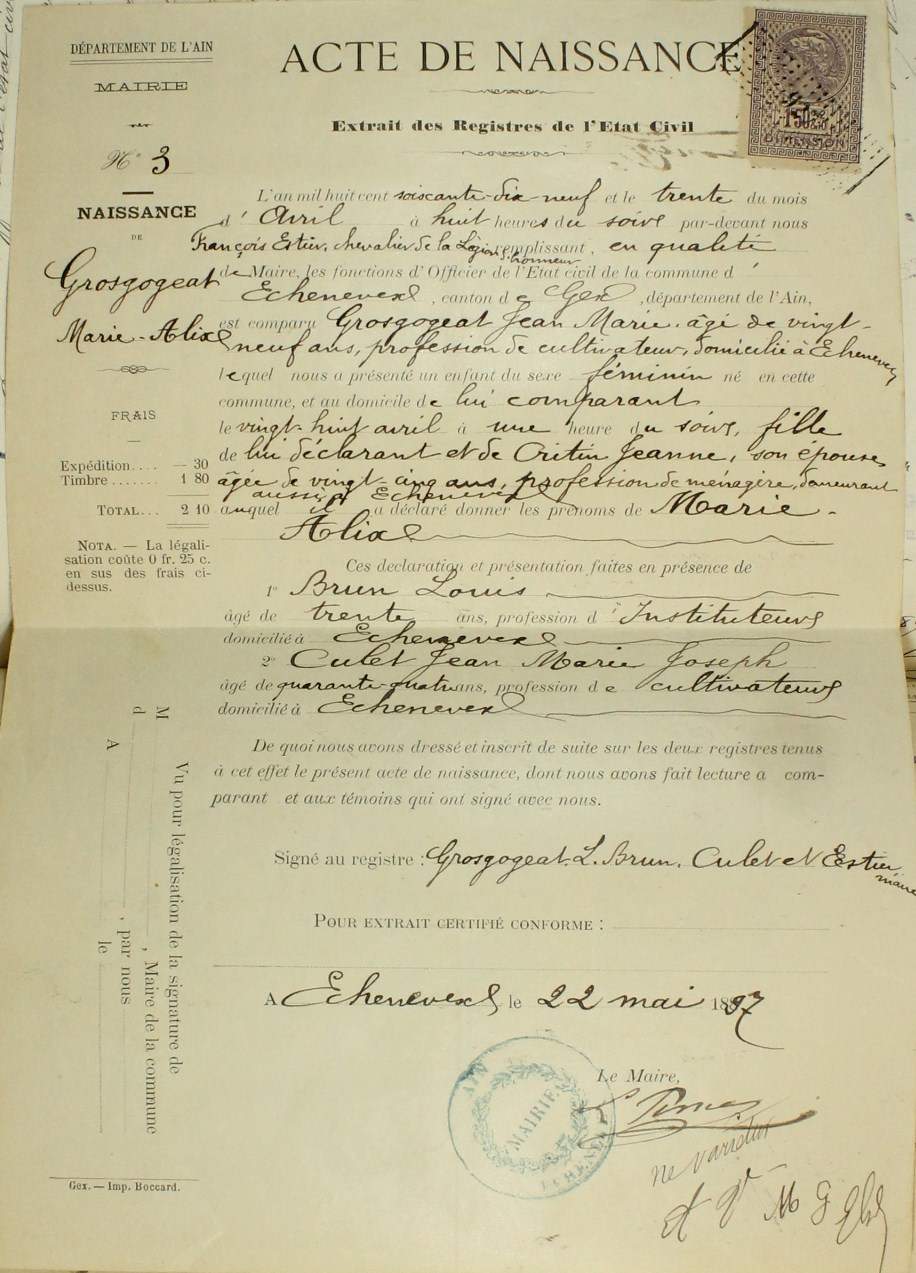 DÉPARTEMENT DE L'AIN
MAIRIE
N° 3
NAISSANCE
DE
Grosgogeat
Marie-Alix
FRAIS
Expédition.... — 30
Timbre....... 1 80
TOTAL... 2 10
NOTA. — La légali-
sation coûte 0 fr. 25 c.
en sus des frais ci-
dessus.
ACTE DE NAISSANCE
Extrait des Registres de l'Etat Civil
1F50
DIMENSION
L'an mil huit cent soiscante-dix neuf et le trente du mois
d' Avril à huit heures du soire par-devant nous
François Estier, chevalier de la Légion d'honneur remplissant, en qualité
de Maire, les fonctions d'Officier de l'Etat civil de la commune d'
Echenevex, canton de Gex, département de l'Ain,
est comparu Grosgogeat Jean Marie, âgé de vingt-
neuf ans, profession de cultivateur, domicilié à Echenevex
lequel nous a présenté un enfant du sexe féminin né en cette
commune, et au domicile de lui comparant
le vingt-huit avril à une heure du soire, fille
de lui déclarant et de Critin Jeanne, son épouse
âgée de vingt-cinq ans, profession de ménagère, demeurant
aussi à Echenevex
auquel il a déclaré donner les prénoms de Marie-
Alix
Ces declaration et présentation faites en présence de
1° Brun Louis
âgé de trente ans, profession d'Instituteur
domicilié à Echenevex
2° Culet Jean Marie Joseph
âgé de quarante-quatre ans, profession de cultivateur
domicilié à Echenevex
De quoi nous avons dressé et inscrit de suite sur les deux registres tenus
à cet effet le présent acte de naissance, dont nous avons fait lecture a com-
parant et aux témoins qui ont signé avec nous.
Signé au registre : Grosgogeat, L. Brun, Culet et Estier,
maire
POUR EXTRAIT CERTIFIÉ CONFORME :
A Echenevex le 22 mai 1897
Le Maire,
AIN
MAIRIE
ne varietur
Vu pour légalisation de la signature de
M , Maire de la commune
d , par nous
A le
Gex. — Imp. Boccard.